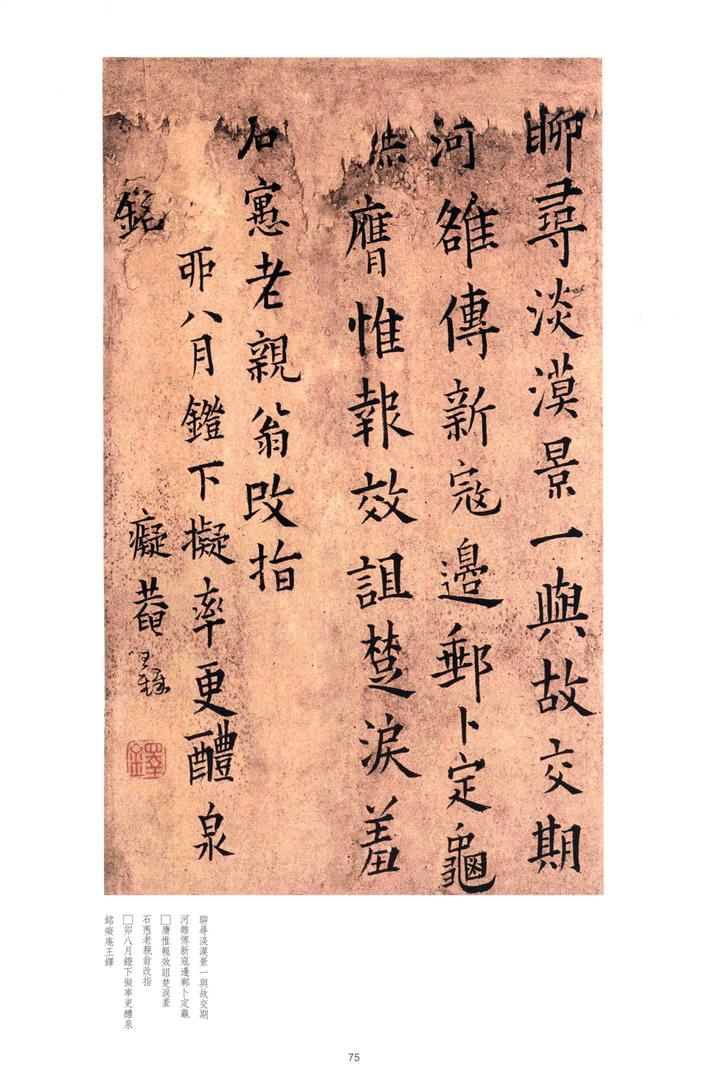 聊尋淡漠景一與故交期
河雒傳新寇邊郵卜定龜
膺惟報效詛楚淚羞
石老親翁改指
丣八月鐙下擬率更醴泉
銘 癡菴王鐸
鐸
聊尋淡漠景一與故交期
河雒傳新寇邊郵卜定龜
□膺惟報效詛楚淚羞
石老親翁改指
□卯八月鐙下擬率更醴泉
銘癡庵王鐸
75